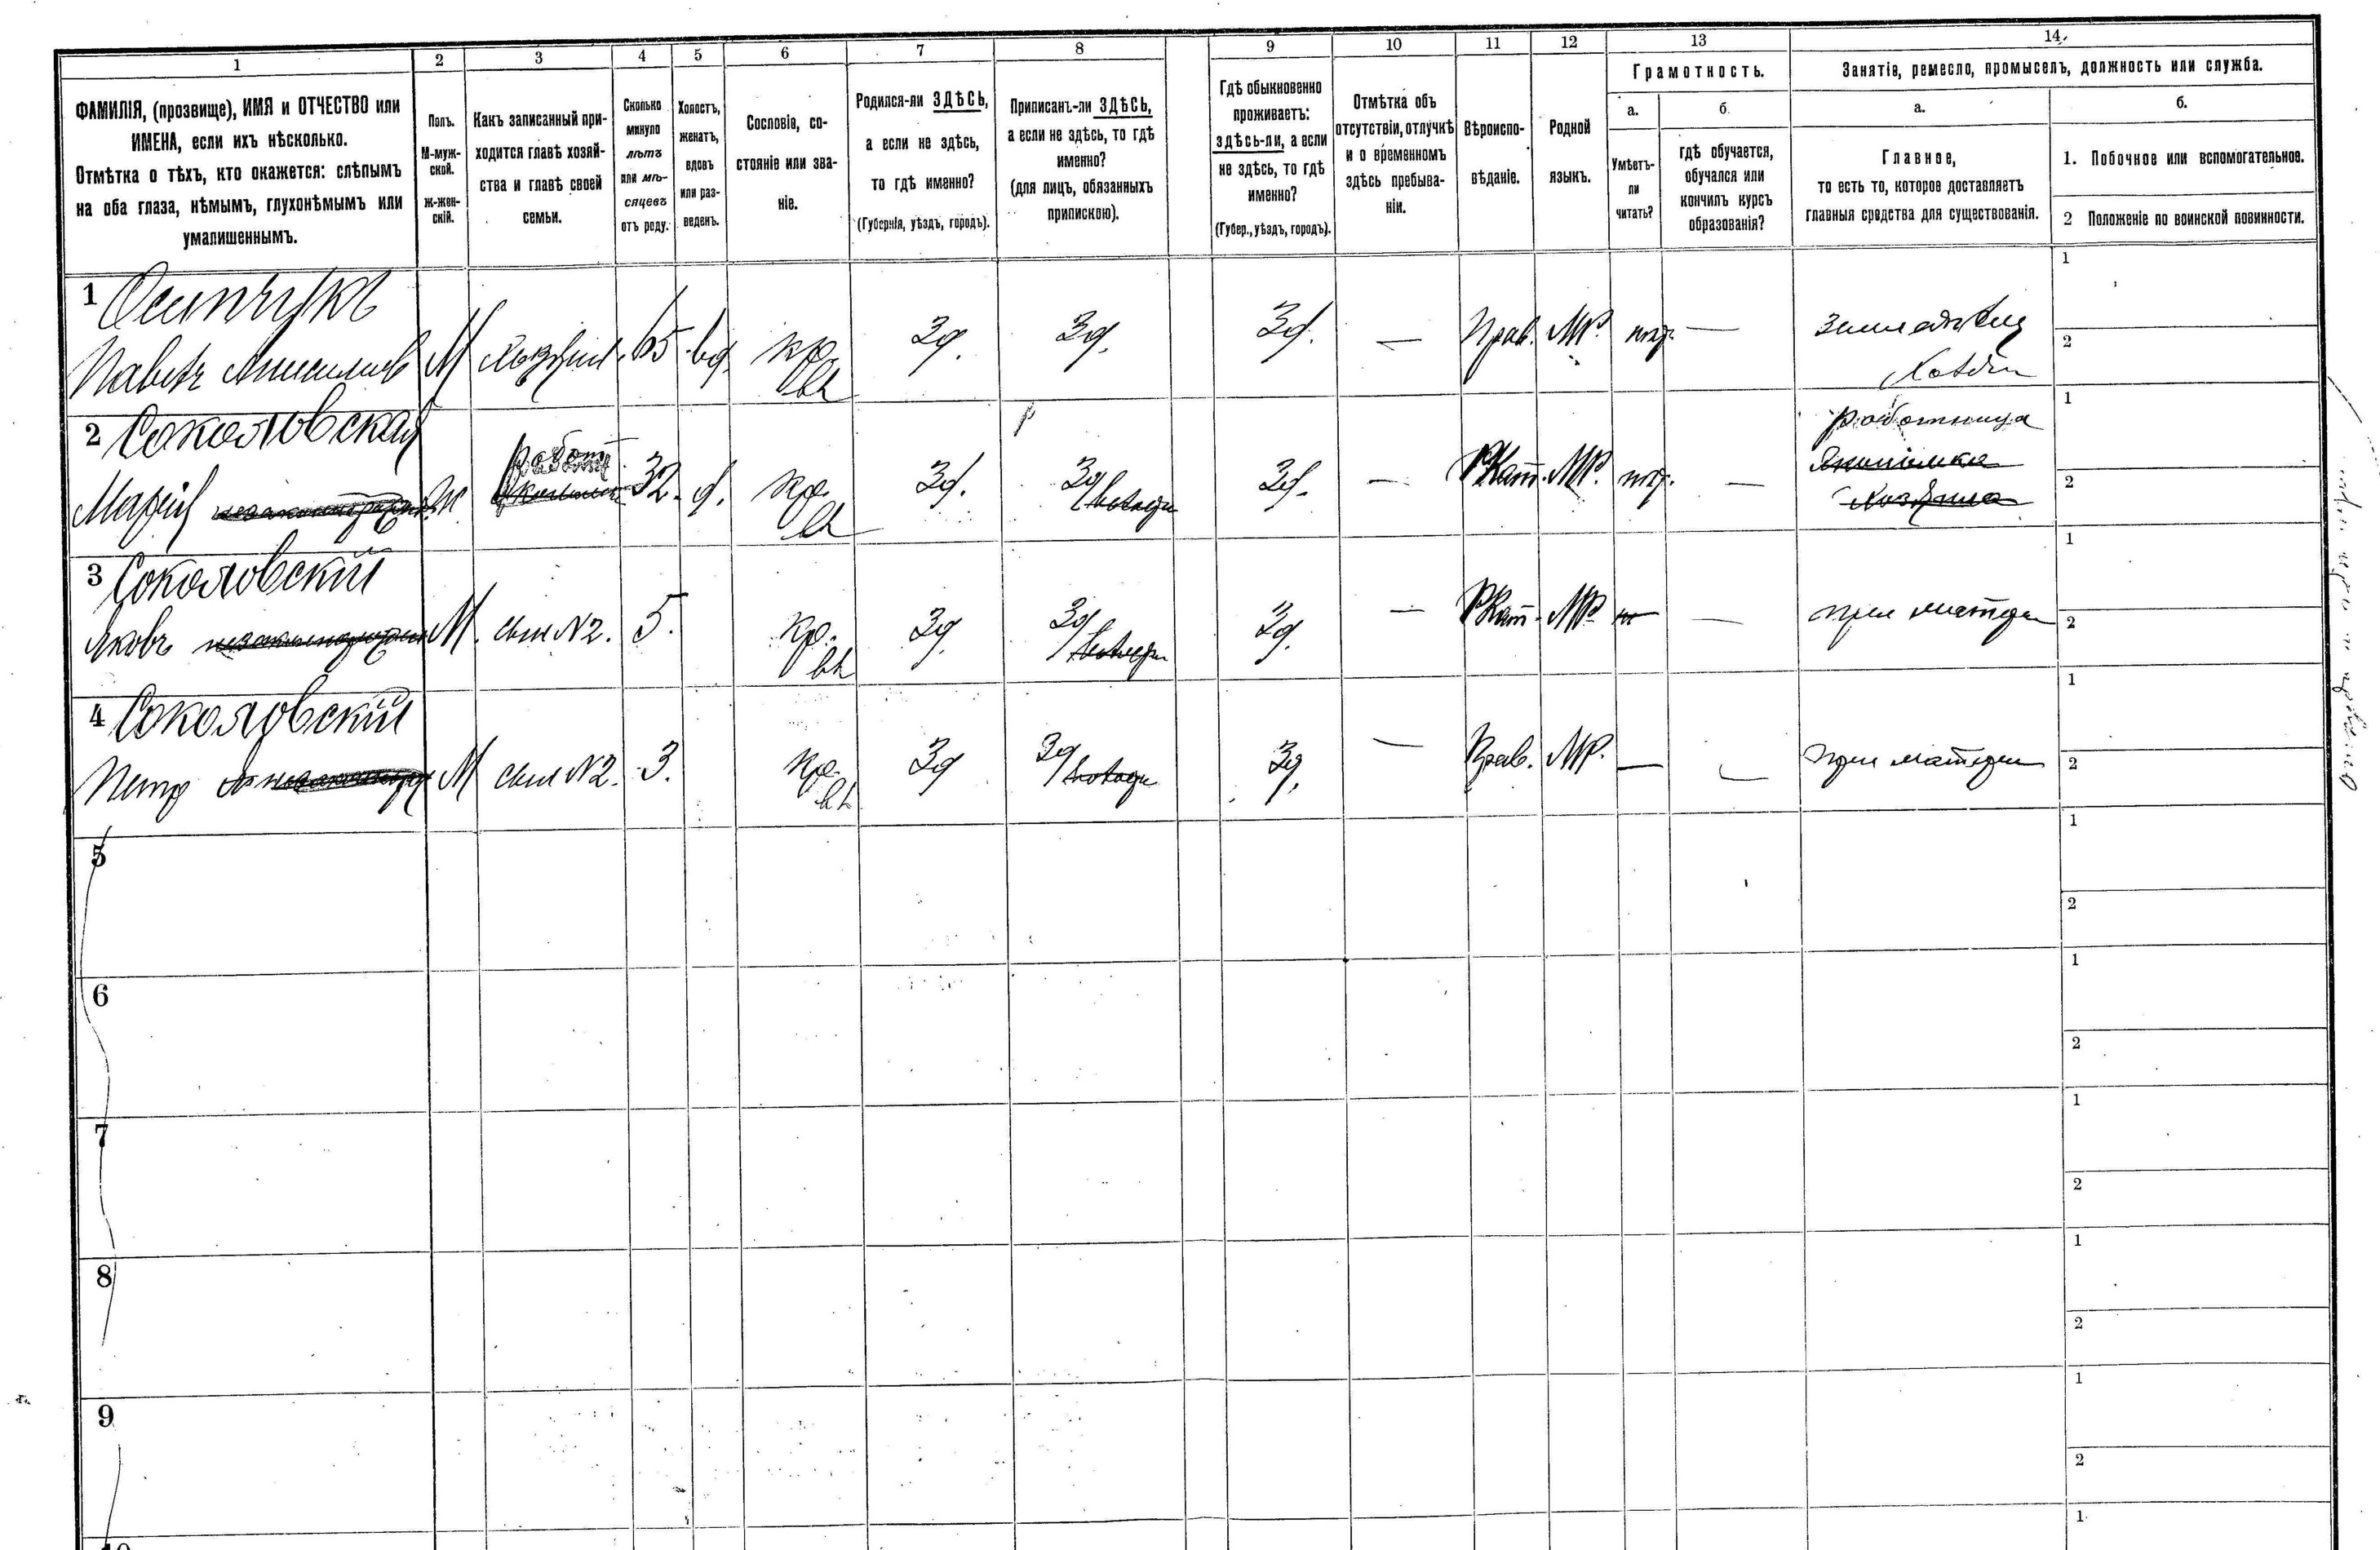 1 2 3 4 5 6 7 8 9 10 11 12 13 14.
ФАМИЛІЯ, (прозвище), ИМЯ и ОТЧЕСТВО или
ИМЕНА, если ихъ нѣсколько.
Отмѣтка о тѣхъ, кто окажется: слѣпымъ
на оба глаза, нѣмымъ, глухонѣмымъ или
умалишеннымъ.
Полъ.
М-муж-
ской.
ж-жен-
скій.
Какъ записанный при-
ходится главѣ хозяй-
ства и главѣ своей
семьи.
Сколько
минуло
лѣтъ
или мѣ-
сяцевъ
отъ роду.
Холостъ,
женатъ,
вдовъ
или раз-
веденъ.
Сословіе, со-
стояніе или зва-
ніе.
Родился-ли ЗДѢСЬ,
а если не здѣсь,
то гдѣ именно?
(Губернія, уѣздъ, городъ).
Приписанъ-ли ЗДѢСЬ,
а если не здѣсь, то гдѣ
именно?
(для лицъ, обязанныхъ
припискою).
Гдѣ обыкновенно
проживаетъ:
здѣсь-ли, а если
не здѣсь, то гдѣ
именно?
(Губер., уѣздъ, городъ).
Отмѣтка объ
отсутствіи, отлучкѣ
и о временномъ
здѣсь пребыва-
ніи.
Вѣроиспо-
вѣданіе.
Родной
языкъ.
Грамотность.
а.
Умѣетъ-
ли
читать?
б.
гдѣ обучается,
обучался или
кончилъ курсъ
образованія?
Занятіе, ремесло, промыселъ, должность или служба.
а.
Главное,
то есть то, которое доставляетъ
главныя средства для существованія.
б.
1. Побочное или вспомогательное.
2 Положеніе по воинской повинности.
1 Осипчукъ
Павелъ М Хозяин 65 вд. кр. Зд. Зд. Зд. — Прав. МР. —
1
2
2 Соколовская
Марія 32. д. кр. Зд. Зд. Зд. — РКат. МР. — работница
1
2
3 Соколовскій
Яковъ М. сын N2. 5. кр. Зд. Зд. Зд. — РКат. МР. — при матери
1
2
4 Соколовскій
Петр М сын N2. 3. кр. Зд Зд Зд. — Прав. МР. — — при матери
1
2
5
1
2
6
1
2
7
1
2
8
1
2
9
1
2
10
1